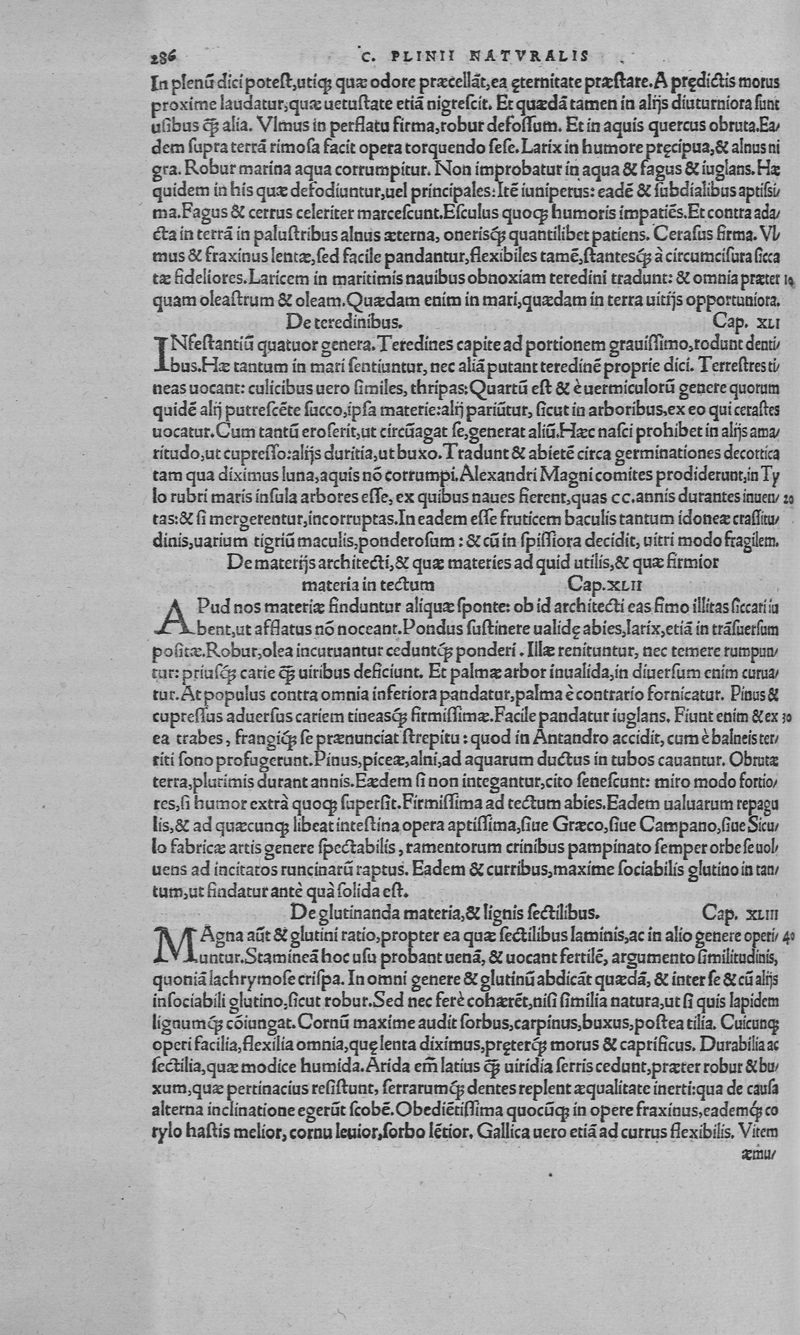 286 C. PLINII NATVRALIS
In plenũ dici poteſt,utiqꝫ quæ odore præcellãt,ea ęternitate præſtare.A prędictis morus
proxime laudatur,quæ uetuſtate etiã nigreſcit. Et quædã tamen in alijs diuturniora ſunt
uſibus ꝗ̃ alia. Vlmus in perflatu firma,robur defoſſum. Et in aquis quercus obruta.Ea/
dem ſupra terrã rimoſa facit opera torquendo ſeſe.Larix in humore pręcipua,& alnus ni
gra. Robur marina aqua corrumpitur. Non improbatur in aqua & fagus & iuglans. Hæ
quidem in his quæ defodiuntur,uel principales:Itẽ iuniperus: eadẽ & ſubdialibus aptiſsi/
ma.Fagus & cerrus celeriter marceſcunt.Eſculus quoqꝫ humoris impatiẽs.Et contra ada/
cta in terrã in paluſtribus alnus æterna, oneriſqꝫ quantilibet patiens. Ceraſus firma. Vl/
mus & fraxinus lentæ,ſed facile pandantur,flexibiles tamẽ,ſtanteſqꝫ à circumciſura ſicca
tæ fideliores.Laricem in maritimis nauibus obnoxiam teredini tradunt: & omnia præter 10
quam oleaſtrum & oleam.Quædam enim in mari,quædam in terra uitijs opportuniora.
De teredinibus. Cap. XLI
INfeſtantiũ quatuor genera.Teredines capite ad portionem grauiſſimo,rodunt denti/
bus.Hæ tantum in mari ſentiuntur, nec aliã putant teredinẽ proprie dici. Terreſtres ti/
neas uocant: culicibus uero ſimiles, thripas:Quartũ eſt & è uermiculorũ genere quorum
quidẽ alij putreſcẽte ſucco,ipſa materie:alij pariũtur, ſicut in arboribus,ex eo qui ceraſtes
uocatur.Cum tantũ eroſerit,ut circũagat ſe,generat aliũ.Hæc naſci prohibet in alijs ama/
ritudo,ut cupreſſo:alijs duritia,ut buxo.Tradunt & abietẽ circa germinationes decortica
tam qua diximus luna,aquis nõ corrumpi.Alexandri Magni comites prodiderunt,in Ty
lo rubri maris inſula arbores eſſe, ex quibus naues fierent,quas cc.annis durantes inuen/ 20
tas:& ſi mergerentur,incorruptas.In eadem eſſe fruticem baculis tantum idoneæ craſſitu/
dinis,uarium tigriũ maculis,ponderoſum : & cũ in ſpiſſiora decidit, uitri modo fragilem.
De materijs architecti,& quæ materies ad quid utilis,& quæ firmior
materia in tectum Cap.XLII
APud nos materiæ finduntur aliquæ ſponte: ob id architecti eas fimo illitas ſiccari iu
bent,ut afflatus nõ noceant.Pondus ſuſtinere ualidę abies,larix,etiã in trãſuerſum
poſitæ.Robur,olea incuruantur ceduntqꝫ ponderi . Illæ renituntur, nec temere rumpun/
tur: priuſqꝫ carie ꝗ̃ uiribus deficiunt. Et palmæ arbor inualida,in diuerſum enim curua/
tur.At populus contra omnia inferiora pandatur,palma è contrario fornicatur. Pinus &
cupreſſus aduerſus cariem tineaſqꝫ firmiſſimæ.Facile pandatur iuglans. Fiunt enim & ex 30
ea trabes, frangiqꝫ ſe prænunciat ſtrepitu : quod in Antandro accidit, cum è balneis ter/
riti ſono profugerunt.Pinus,piceæ,alni,ad aquarum ductus in tubos cauantur. Obrutæ
terra,plurimis durant annis.Eædem ſi non integantur,cito ſeneſcunt: miro modo fortio/
res,ſi humor extrà quoqꝫ ſuperſit.Firmiſſima ad tectum abies.Eadem ualuarum repagu
lis,& ad quæcunqꝫ libeat inteſtina opera aptiſſima,ſiue Græco,ſiue Campano,ſiue Sicu/
lo fabricæ artis genere ſpectabilis, ramentorum crinibus pampinato ſemper orbe ſe uol/
uens ad incitatos runcinarũ raptus. Eadem & curribus,maxime ſociabilis glutino in tan/
tum,ut findatur antè quà ſolida eſt.
De glutinanda materia,& lignis ſectilibus. Cap. XLIII
MAgna aũt & glutini ratio,propter ea quæ ſectilibus laminis,ac in alio genere operi/ 40
untur.Stamineã hoc uſu probant uenã, & uocant fertilẽ, argumento ſimilitudinis,
quoniã lachrymoſe criſpa. In omni genere & glutinũ abdicãt quædã, & inter ſe & cũ alijs
inſociabili glutino,ſicut robur.Sed nec ferè cohærẽt,niſi ſimilia natura,ut ſi quis lapidem
lignumqꝫ cõiungat.Cornũ maxime audit ſorbus,carpinus,buxus,poſtea tilia. Cuicunqꝫ
operi facilia,flexilia omnia,quę lenta diximus,pręterqꝫ morus & caprificus. Durabilia ac
ſectilia,quæ modice humida.Arida em̃ latius ꝗ̃ uiridia ſerris cedunt,præter robur & bu/
xum,quæ pertinacius reſiſtunt, ſerrarumqꝫ dentes replent æqualitate inerti:qua de cauſa
alterna inclinatione egerũt ſcobẽ.Obediẽtiſſima quocũqꝫ in opere fraxinus,eademqꝫ co
rylo haſtis melior, cornu leuior,ſorbo lẽtior. Gallica uero etiã ad currus flexibilis. Vitem
æmu/